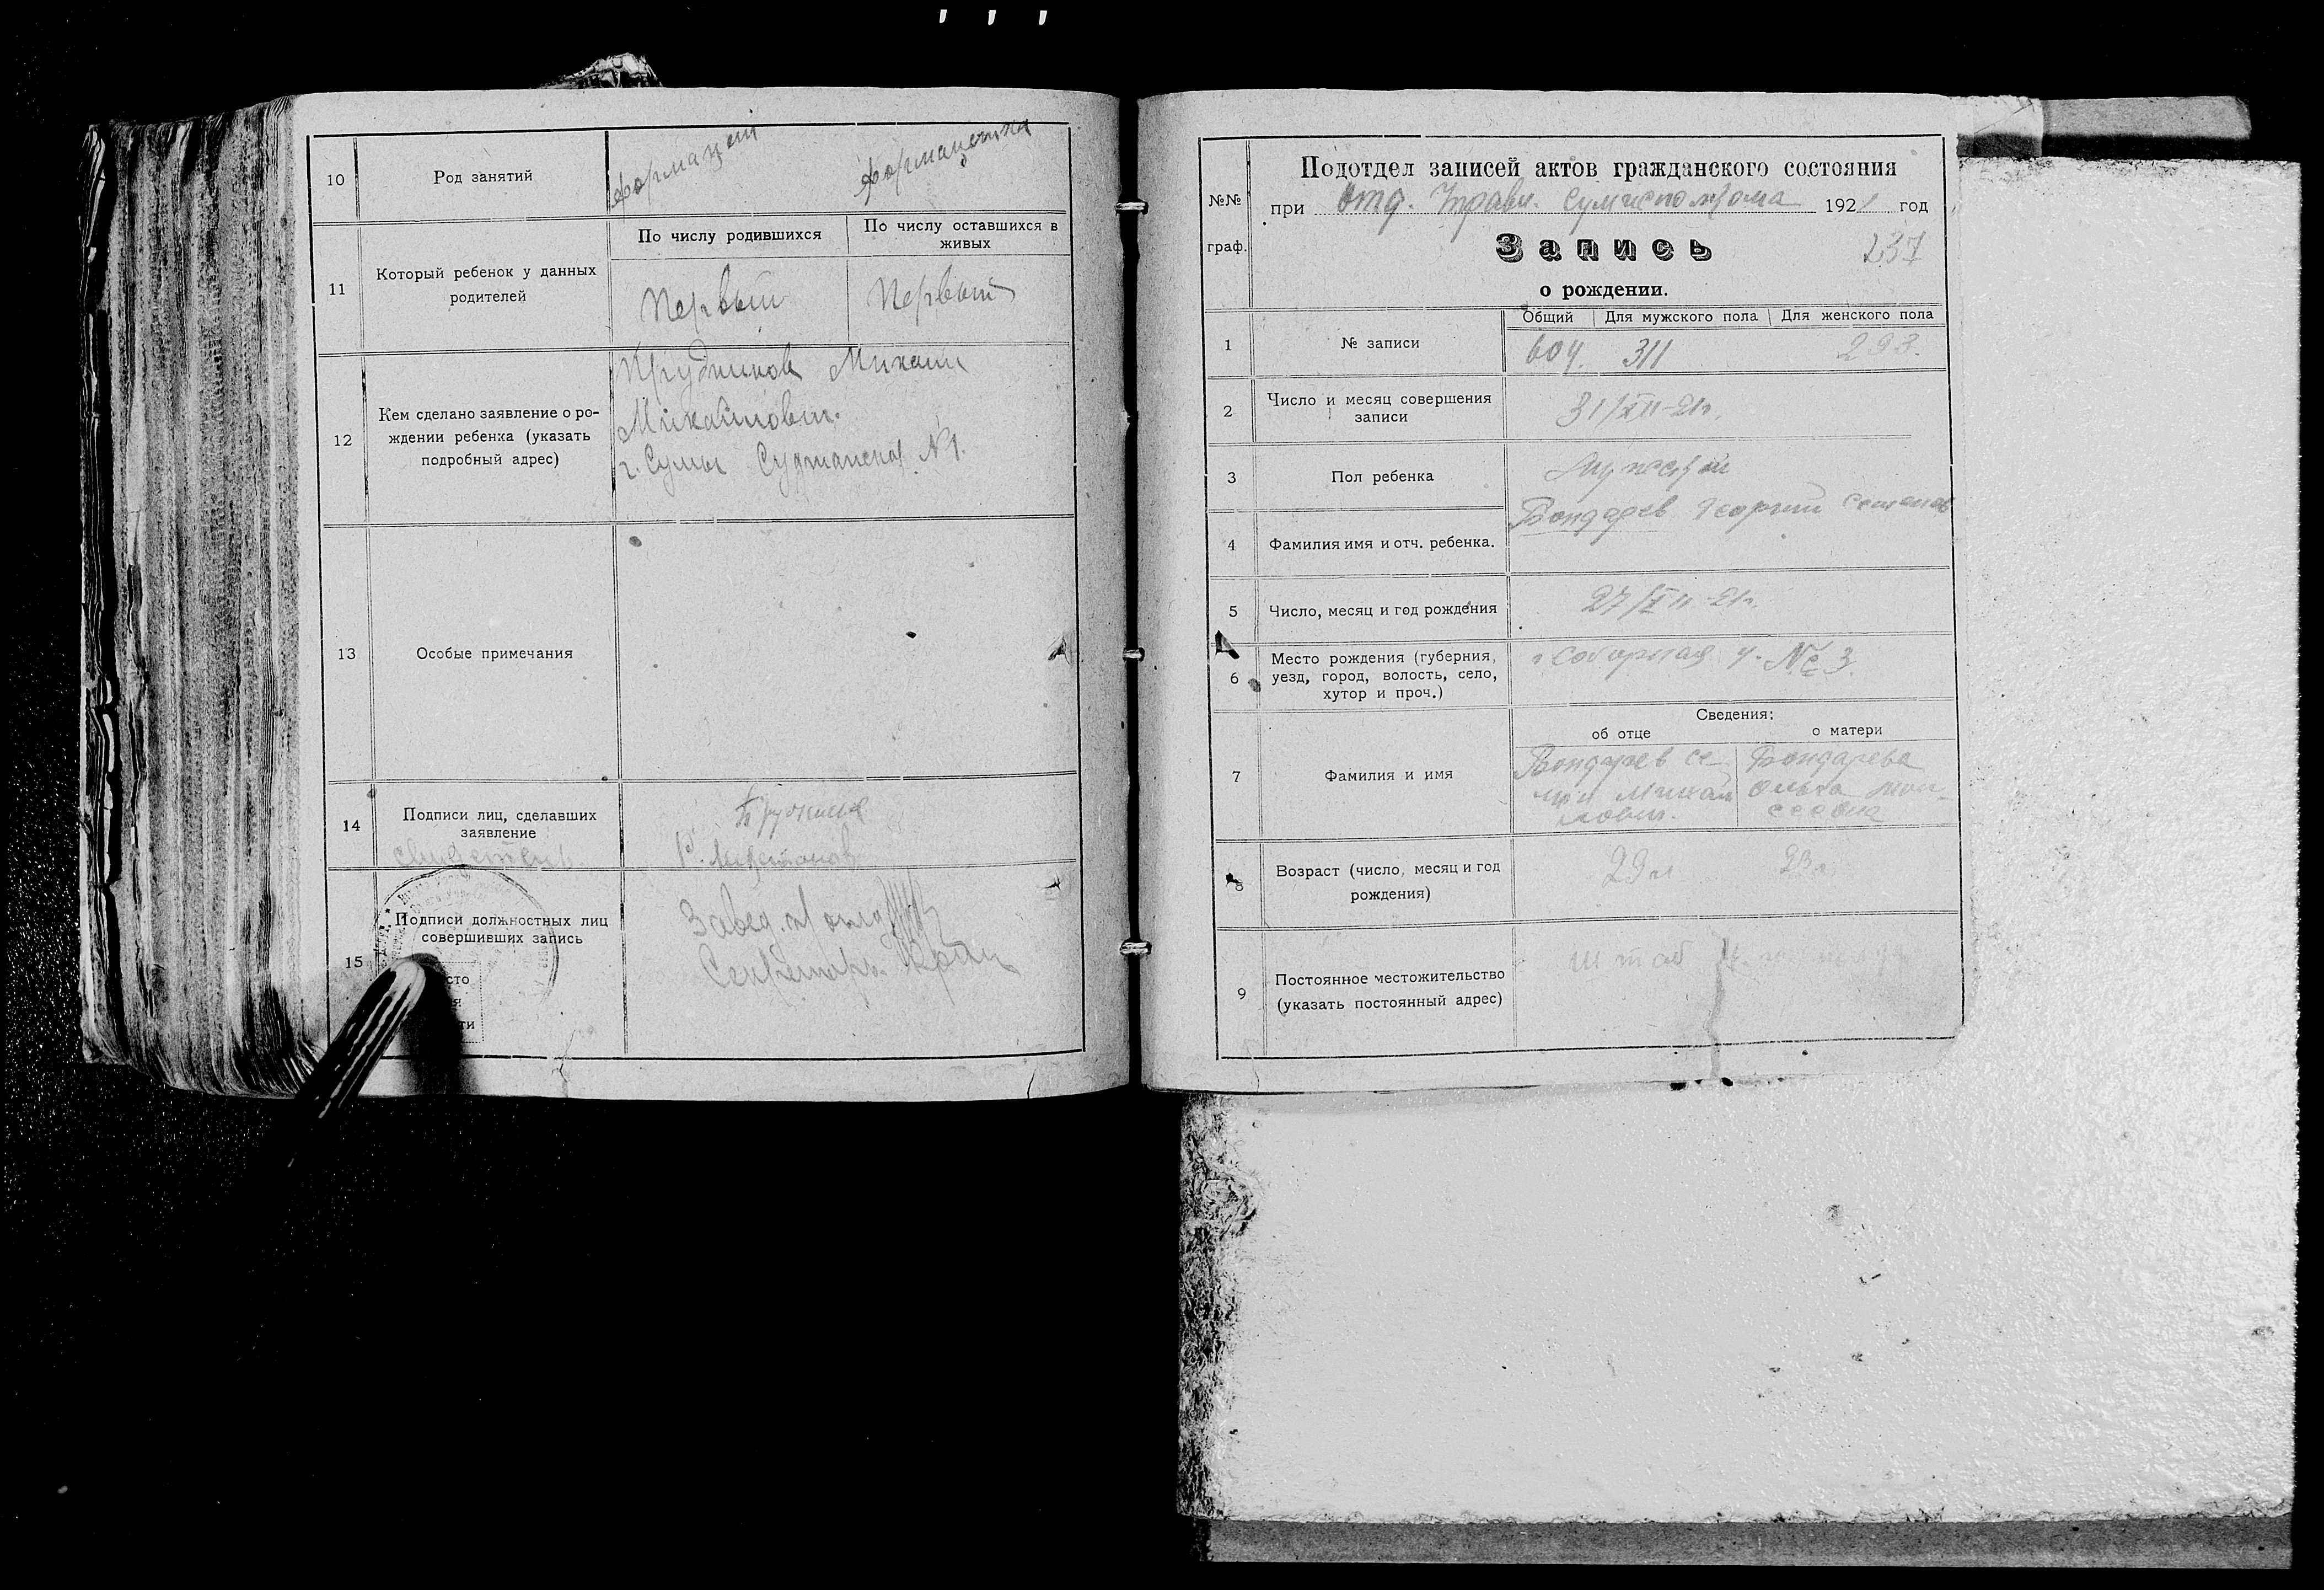 10 Род занятий фармацевт фармацевтка
11 Который ребенок у данных
родителей
По числу родившихся По числу оставшихся в
живых
Первый Первый
12 Кем сделано заявление о ро-
ждении ребенка (указать
подробный адрес)
Михаил
Михайлович
г. Сумы Суджанская №1.
13 Особые примечания
14 Подписи лиц, сделавших
заявление
15 Подписи должностных лиц
совершивших запись
Завед.
Секретарь
№№
граф.
Подотдел записей актов гражданского состояния
при Отд. Управл. Сумисполкома 1921 год
Запись 237
о рождении.
Общий Для мужского пола Для женского пола
1 № записи 604. 311 293.
2 Число и месяц совершения
записи
31/XII-21г.
3 Пол ребенка мужской
4 Фамилия имя и отч. ребенка. Бондарев Георгий Семенов
5 Число, месяц и год рождения 27/XII-21г.
6 Место рождения (губерния,
уезд, город, волость, село,
хутор и проч.)
Соборная у. № 3.
Сведения:
об отце о матери
7 Фамилия и имя
Бондарев Се- Бондарева
Михай Ольга
лович.
8 Возраст (число, месяц и год
рождения)
29 л 23 л.
9 Постоянное местожительство
(указать постоянный адрес)
штаб